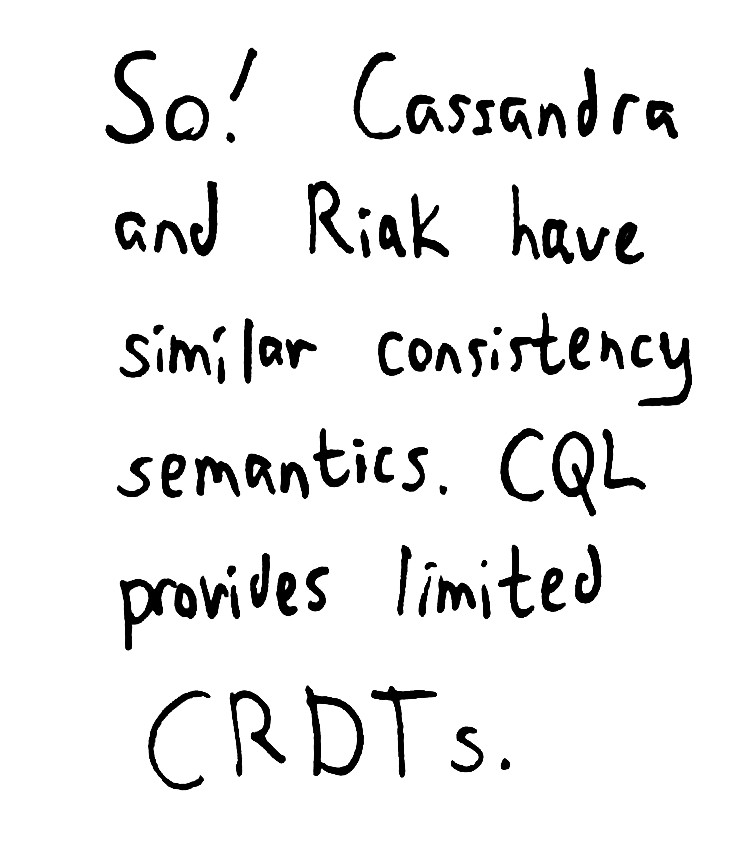 So! Cassandra
and Riak have
similar consistency
semantics. CQL
provides limited
CRDTs.